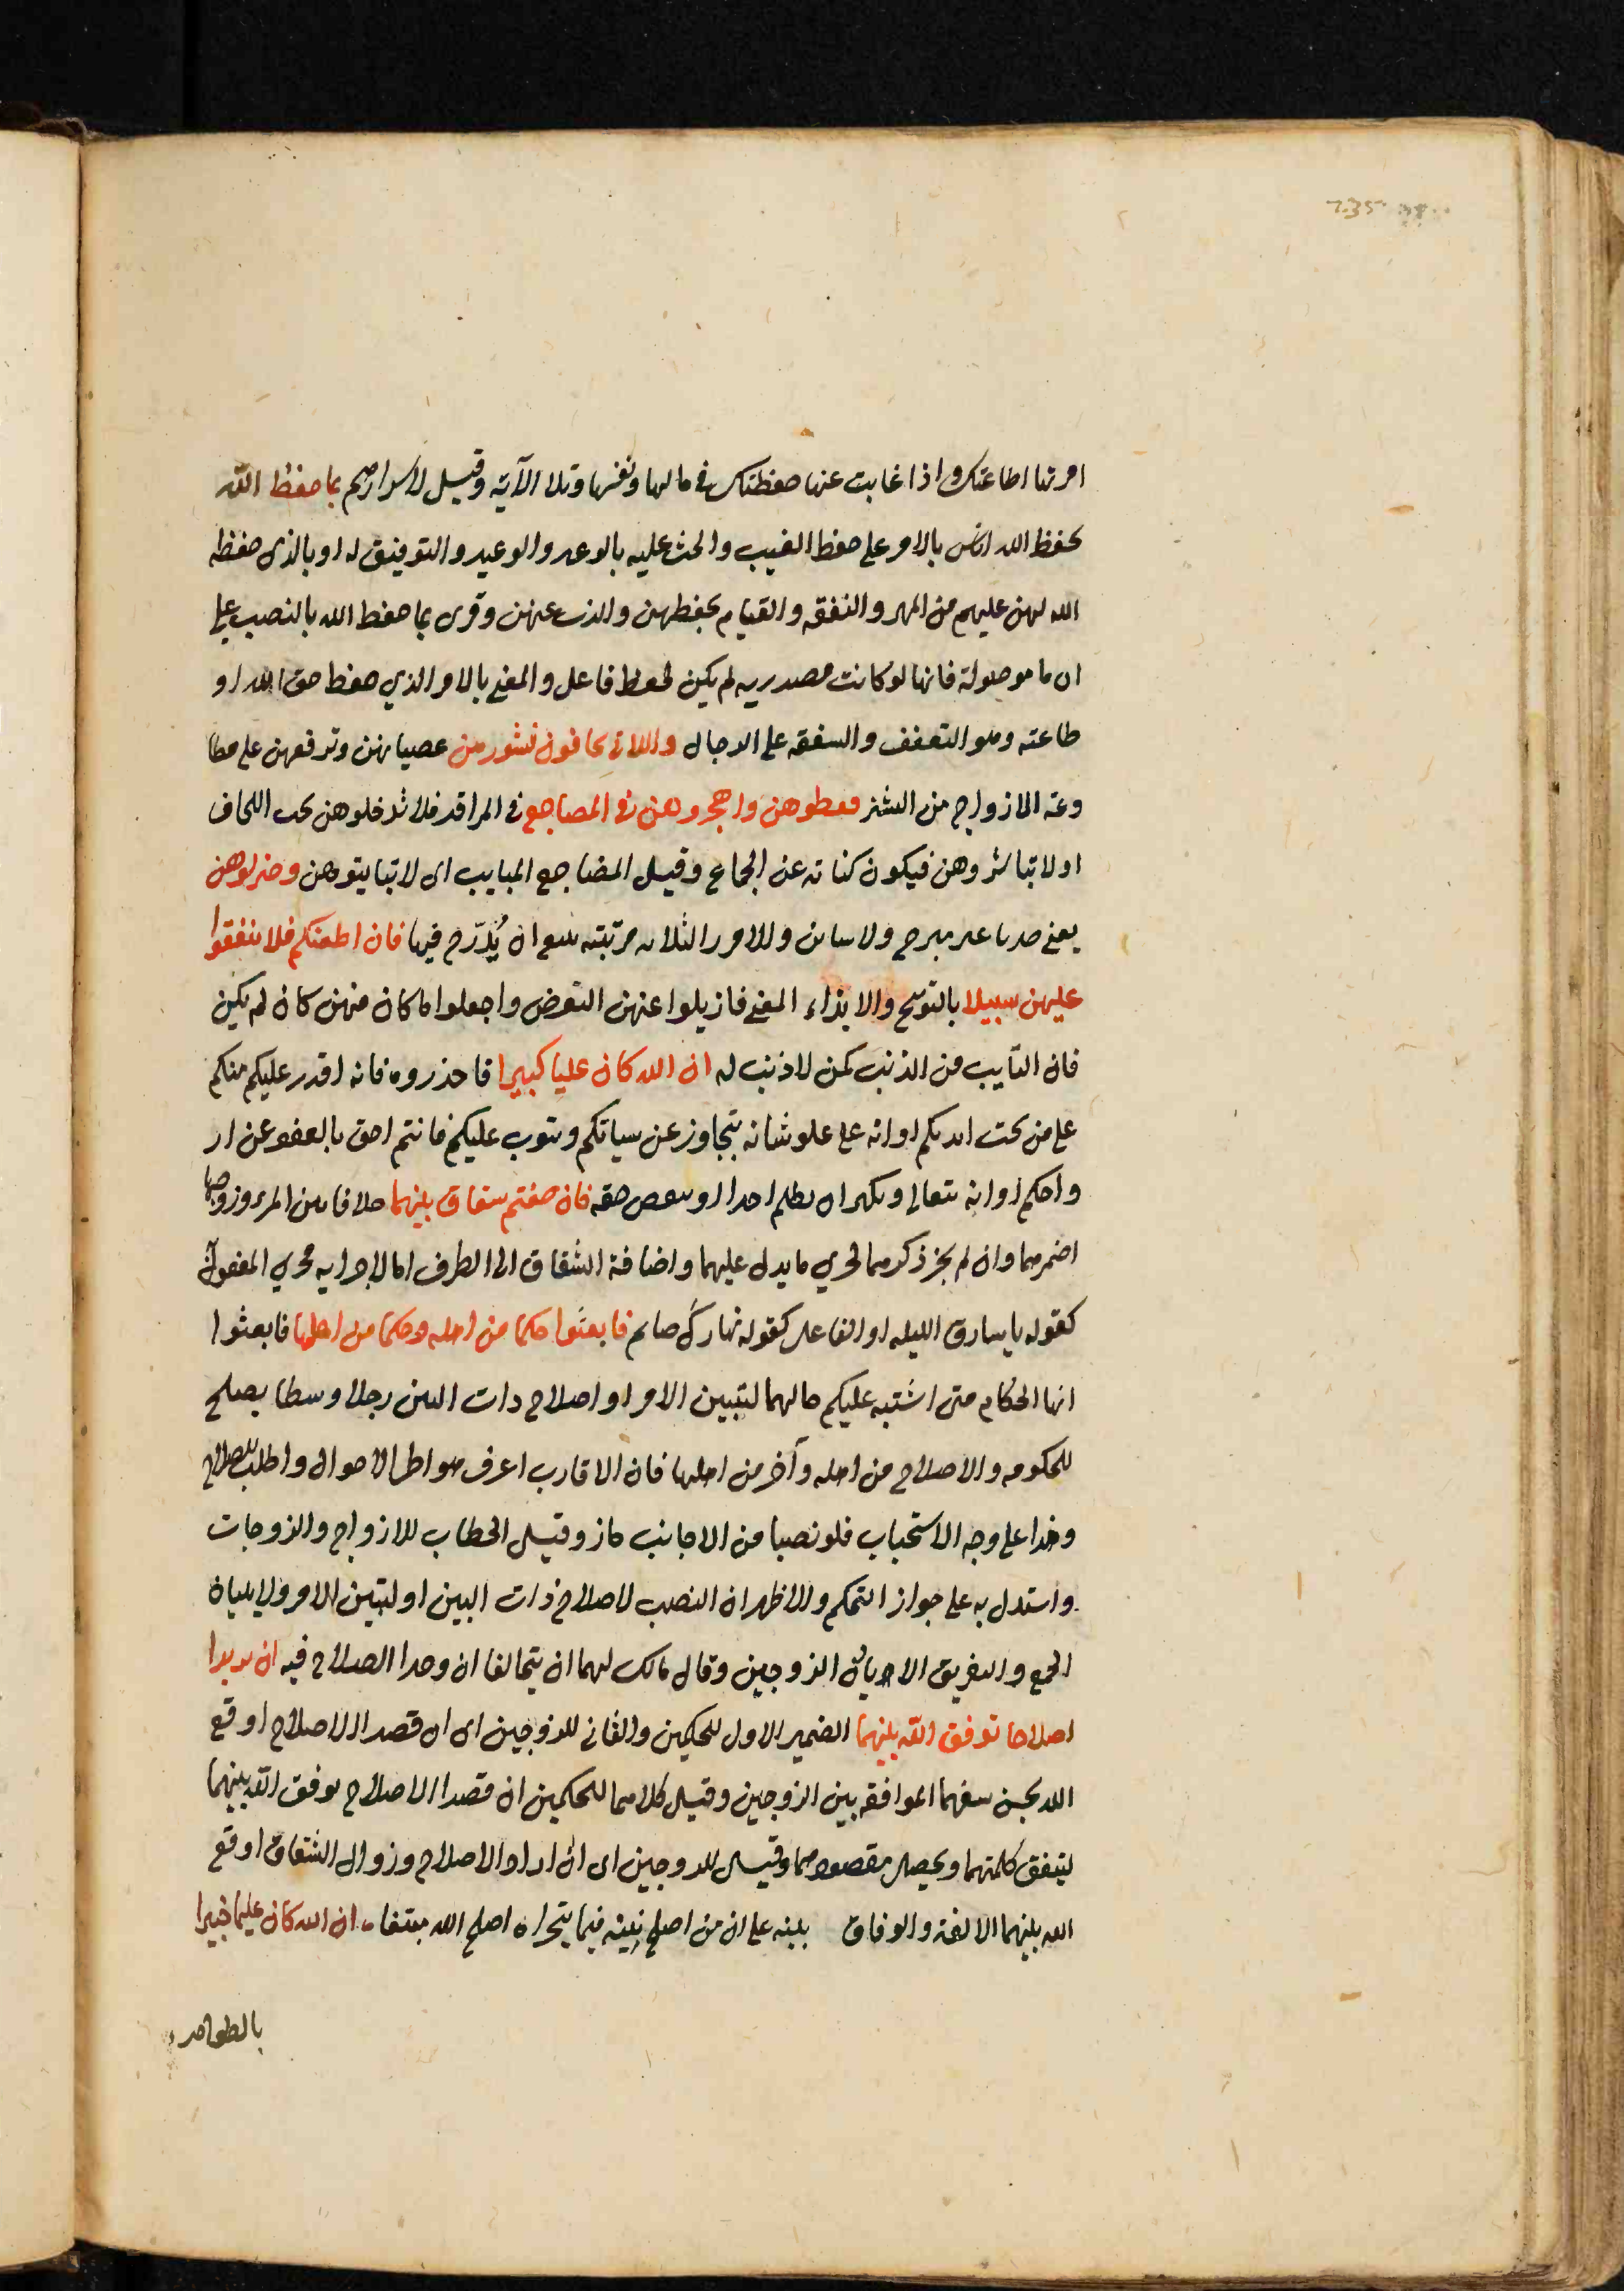 امرتها اطاعتك واذا غابت عنها حفظتك في مالها ونفسها وتلا الآية وقيل لاسرارهم بما حفظ الله
بحفظ الله اياهن بالامر على حفظ الغيب والحث عليه بالوعد والوعيد والتوفيق له او بالذي حفظه
الله لهن عليهم من المهر والنفقه والقيام بحفظهن والذب عنهن وقرى بما حفظ الله بالنصب على
ان ما موصولة فانها لو كانت مصدريه لم يكن لحفظ فاعل والمعنى بالامر الذي حفظ حق الله او
طاعته وهو التعفف والشفقه على الرجال واللاتي تخافون نشوزهن عصيانهن وترفعهن على مطا
وعة الازواج من النشز فعظوهن واهجروهن في المضاجع في المراقد فلا تدخلوهن تحت اللحاف
اولا تباشروهن فيكون كناية عن الجماع وقيل المضاجع المبايت اى لا تبايتوهن واضربوهن
يعنى ضربا غير مبرح ولا شاين والامور الثلاثه مرتبته ينبغي ان يُدرّج فيها فان اطعنكم فلا تبغوا
عليهن سبيلا بالتوبيخ والايذاء المعنى فازيلوا عنهن التعرض واجعلوا ما كان منهن كان لم يكن
فان التايب من الذنب كمن لا ذنب له ان الله كان عليا كبيرا فاحذروه فانه اقدر عليكم منكم
على من تحت ايديكم او انه على علو شانه يتجاوز عن سياتكم ويتوب عليكم فانتم احق بالعفو عن از
واجكم او انه يتعالى ويكبر ان يظلم احدا او ينقص حقه فان خفتم شقاق بينهما خلافا بين المرء وزوجها
اضمرهما وان لم يجز ذكرهما لجري ما يدل عليهما واضافة الشقاق الى الظرف اما لاجرايه مجرى المفعول
كقوله يا سارق الليله او الفاعل كقوله نهارك صايم فابعثوا حكما من اهله وحكما من اهلها فابعثوا
ايها الحكام متى اشتبه عليكم حالهما لتبين الامر او اصلاح ذات البين رجلا وسطا يصلح
للحكومه والاصلاح من اهله وآخر من اهلها فان الاقارب اعرف ببواطن الاحوال واطلب للصلاح
وهذا على وجه الاستحباب فلو نصبا من الاجانب جاز وقيل الخطاب للازواج والزوجات
واستدل به على جواز التحكم والاظهر ان النصب لاصلاح ذات البين او لتبين الامر ولا يليان
الجمع والتفريق الا باذن الزوجين وقال مالك لهما ان يتخالعا ان وجدا الصلاح فيه ان يريدا
اصلاحا يوفق الله بينهما الضمير الاول للحكمين والثاني للزوجين اى ان قصدا الاصلاح اوقع
الله بحسن سعيهما الموافقه بين الزوجين وقيل كلاهما للحكمين ان قصدا الاصلاح يوفق الله بينهما
ليتفق كلمتهما ويحصل مقصودهما وقيل للزوجين اى ان ارادا الاصلاح وزوال الشقاق اوقع
الله بينهما الالفة والوفاق بينه على ان من اصلح نيته فيما يتحراه اصلح الله مبتغاه ان الله كان عليما خبيرا